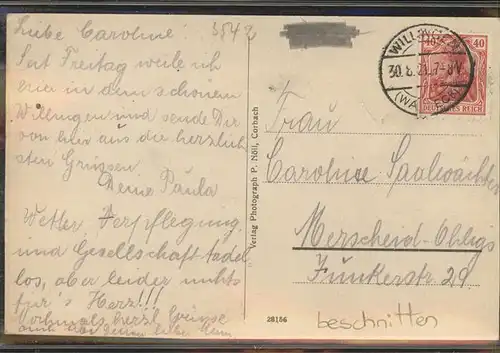 Liebe Caroline! 3542
Seit Freitag weile ich
hier in dem schönen
Willingen und sende Dir
von hier aus die herzlich
sten Grüssen
Deine Paula
Wetter, Verpflegung
und Gesellschaft tadel
los, aber leider nichts
für's Herz!!!
Nochmals herzl. Grüsse
auch an Deine liebe
Verlag Photograph P. Nöll, Corbach
28156
WILLINGEN
30.8.21.7-8V
(WALDECK)
40 40
DEUTSCHES REICH
Frau
Caroline Saalwächter
Merscheid-Ohligs
Junkerstr 29.
beschnitten